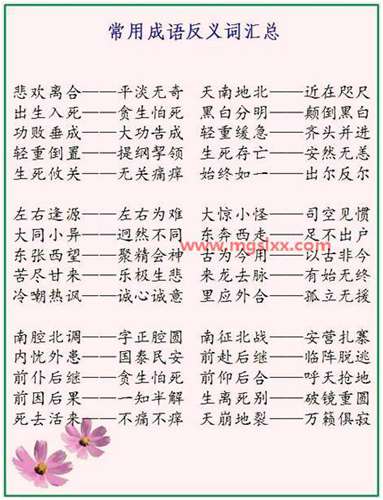 常用成语反义词汇总
悲欢离合——平淡无奇 天南地北——近在咫尺
出生入死——贪生怕死 黑白分明——颠倒黑白
功败垂成——大功告成 轻重缓急——齐头并进
轻重倒置——提纲挈领 生死存亡——安然无恙
生死攸关——无关痛痒 始终如一——出尔反尔
左右逢源——左右为难 大惊小怪——司空见惯
大同小异——迥然不同 东奔西走——足不出户
www.mgslxx.com
东张西望——聚精会神 古为今用——以古非今
苦尽甘来——乐极生悲 来龙去脉——有始无终
冷嘲热讽——诚心诚意 里应外合——孤立无援
南腔北调——字正腔圆 南征北战——安营扎寨
内忧外患——国泰民安 前赴后继——临阵脱逃
前仆后继——贪生怕死 前仰后合——呼天抢地
前因后果——一知半解 生离死别——破镜重圆
死去活来——不痛不痒 天崩地裂——万籁俱寂